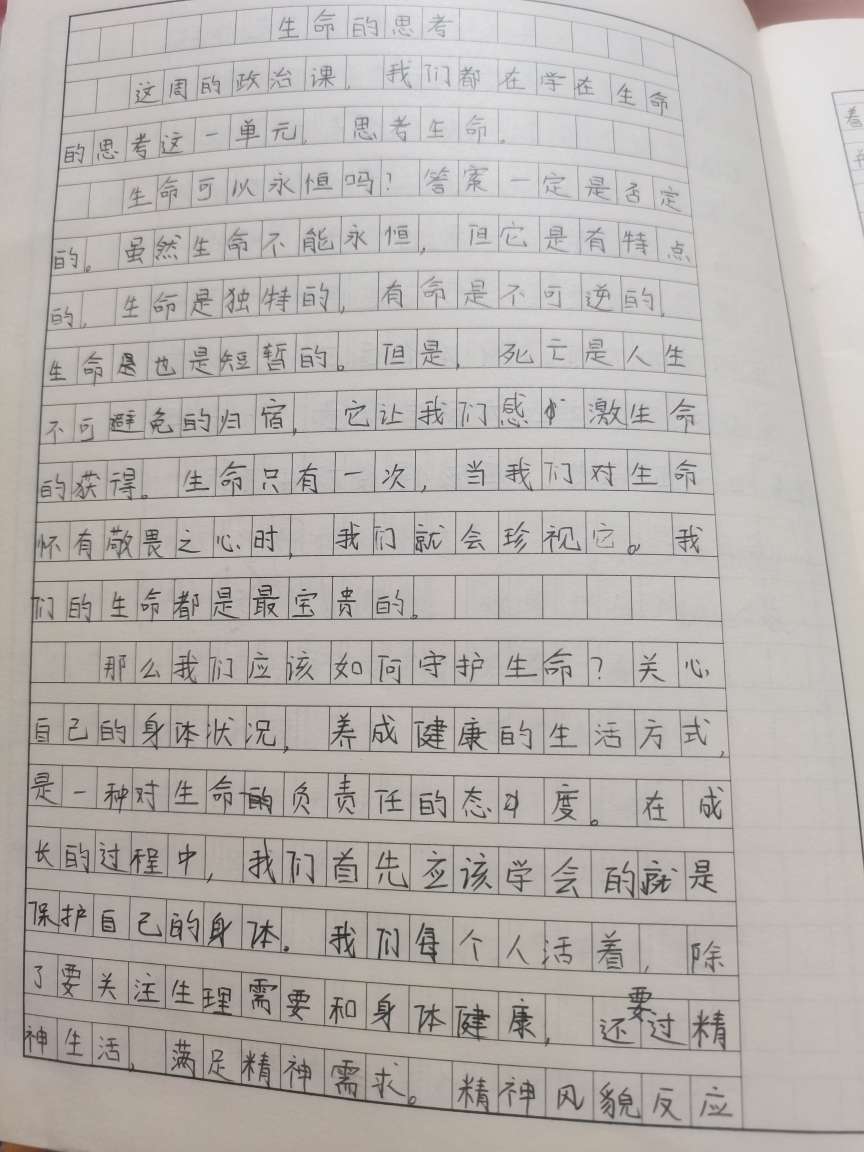 生命的思考
这周的政治课，我们都在学在生命
的思考这一单元，思考生命。
生命可以永恒吗？答案一定是否定
的。虽然生命不能永恒，但它是有特点
的，生命是独特的，有命是不可逆的，
生命是也是短暂的。但是，死亡是人生
不可避免的归宿，它让我们感激生命
的获得。生命只有一次，当我们对生命
怀有敬畏之心时，我们就会珍视它。我
们的生命都是最宝贵的。
那么我们应该如何守护生命？关心
自己的身体状况，养成健康的生活方式，
是一种对生命的负责任的态度。在成
长的过程中，我们首先应该学会的就是
保护自己的身体。我们每个人活着，除
了要关注生理需要和身体健康，还要过精
神生活，满足精神需求。精神风貌反应